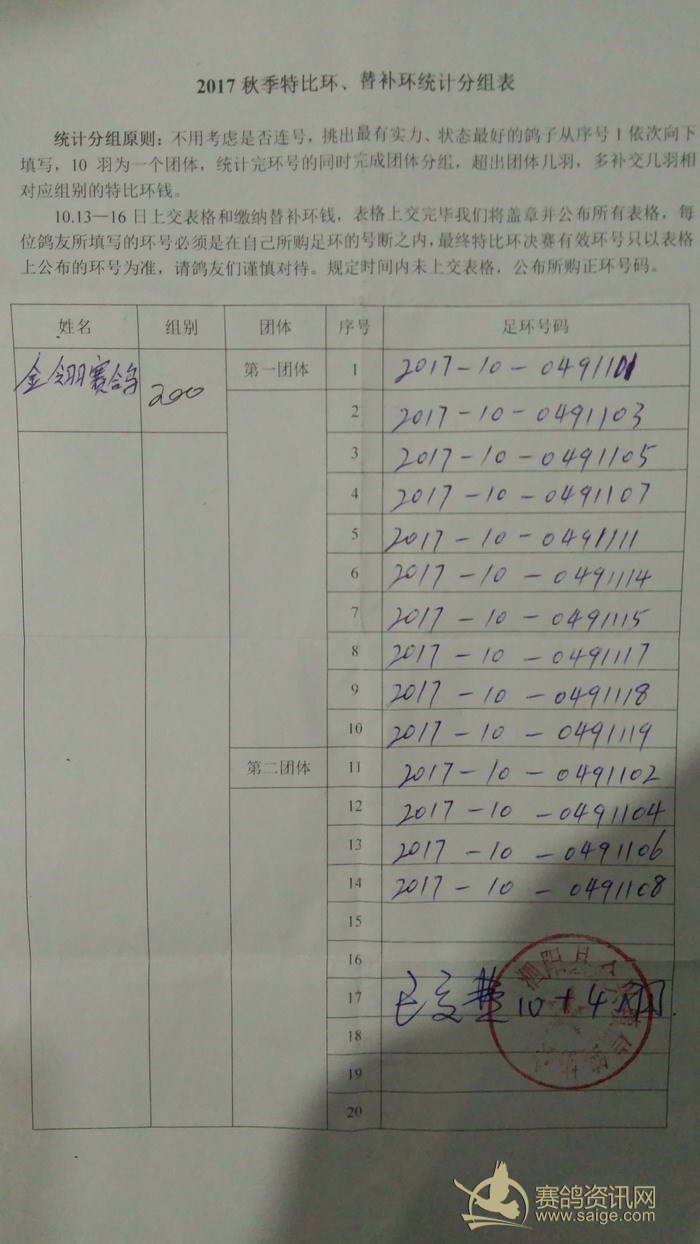 2017 秋季特比环、替补环统计分组表
统计分组原则：不用考虑是否连号，挑出最有实力、状态最好的鸽子从序号 1 依次向下
填写，10 羽为一个团体，统计完环号的同时完成团体分组，超出团体几羽，多补交几羽相
对应组别的特比环钱。
10.13—16 日上交表格和缴纳替补环钱，表格上交完毕我们将盖章并公布所有表格，每
位鸽友所填写的环号必须是在自己所购足环的号断之内，最终特比环决赛有效环号只以表格
上公布的环号为准，请鸽友们谨慎对待。规定时间内未上交表格，公布所购正环号码。
姓名 组别 团体 序号 足环号码
金翎赛鸽 200 第一团体 1 2017-10-0491101
2 2017-10-0491103
3 2017-10-0491105
4 2017-10-0491107
5 2017-10-0491111
6 2017-10-0491114
7 2017-10-0491115
8 2017-10-0491117
9 2017-10-0491118
10 2017-10-0491119
第二团体 11 2017-10-0491102
12 2017-10-0491104
13 2017-10-0491106
14 2017-10-0491108
15
16
17 已交费 10+4
18
19
20
赛鸽资讯网
www.saige.com